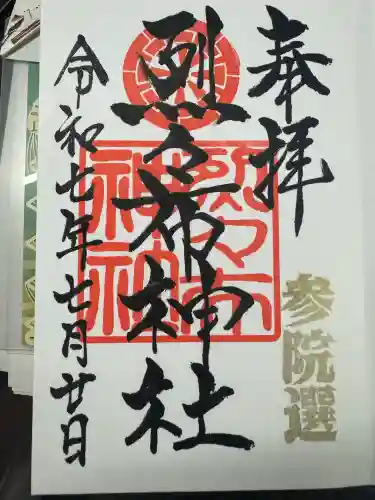 奉拝
参院選
烈々布神社
令和七年七月廿日
烈々布神社